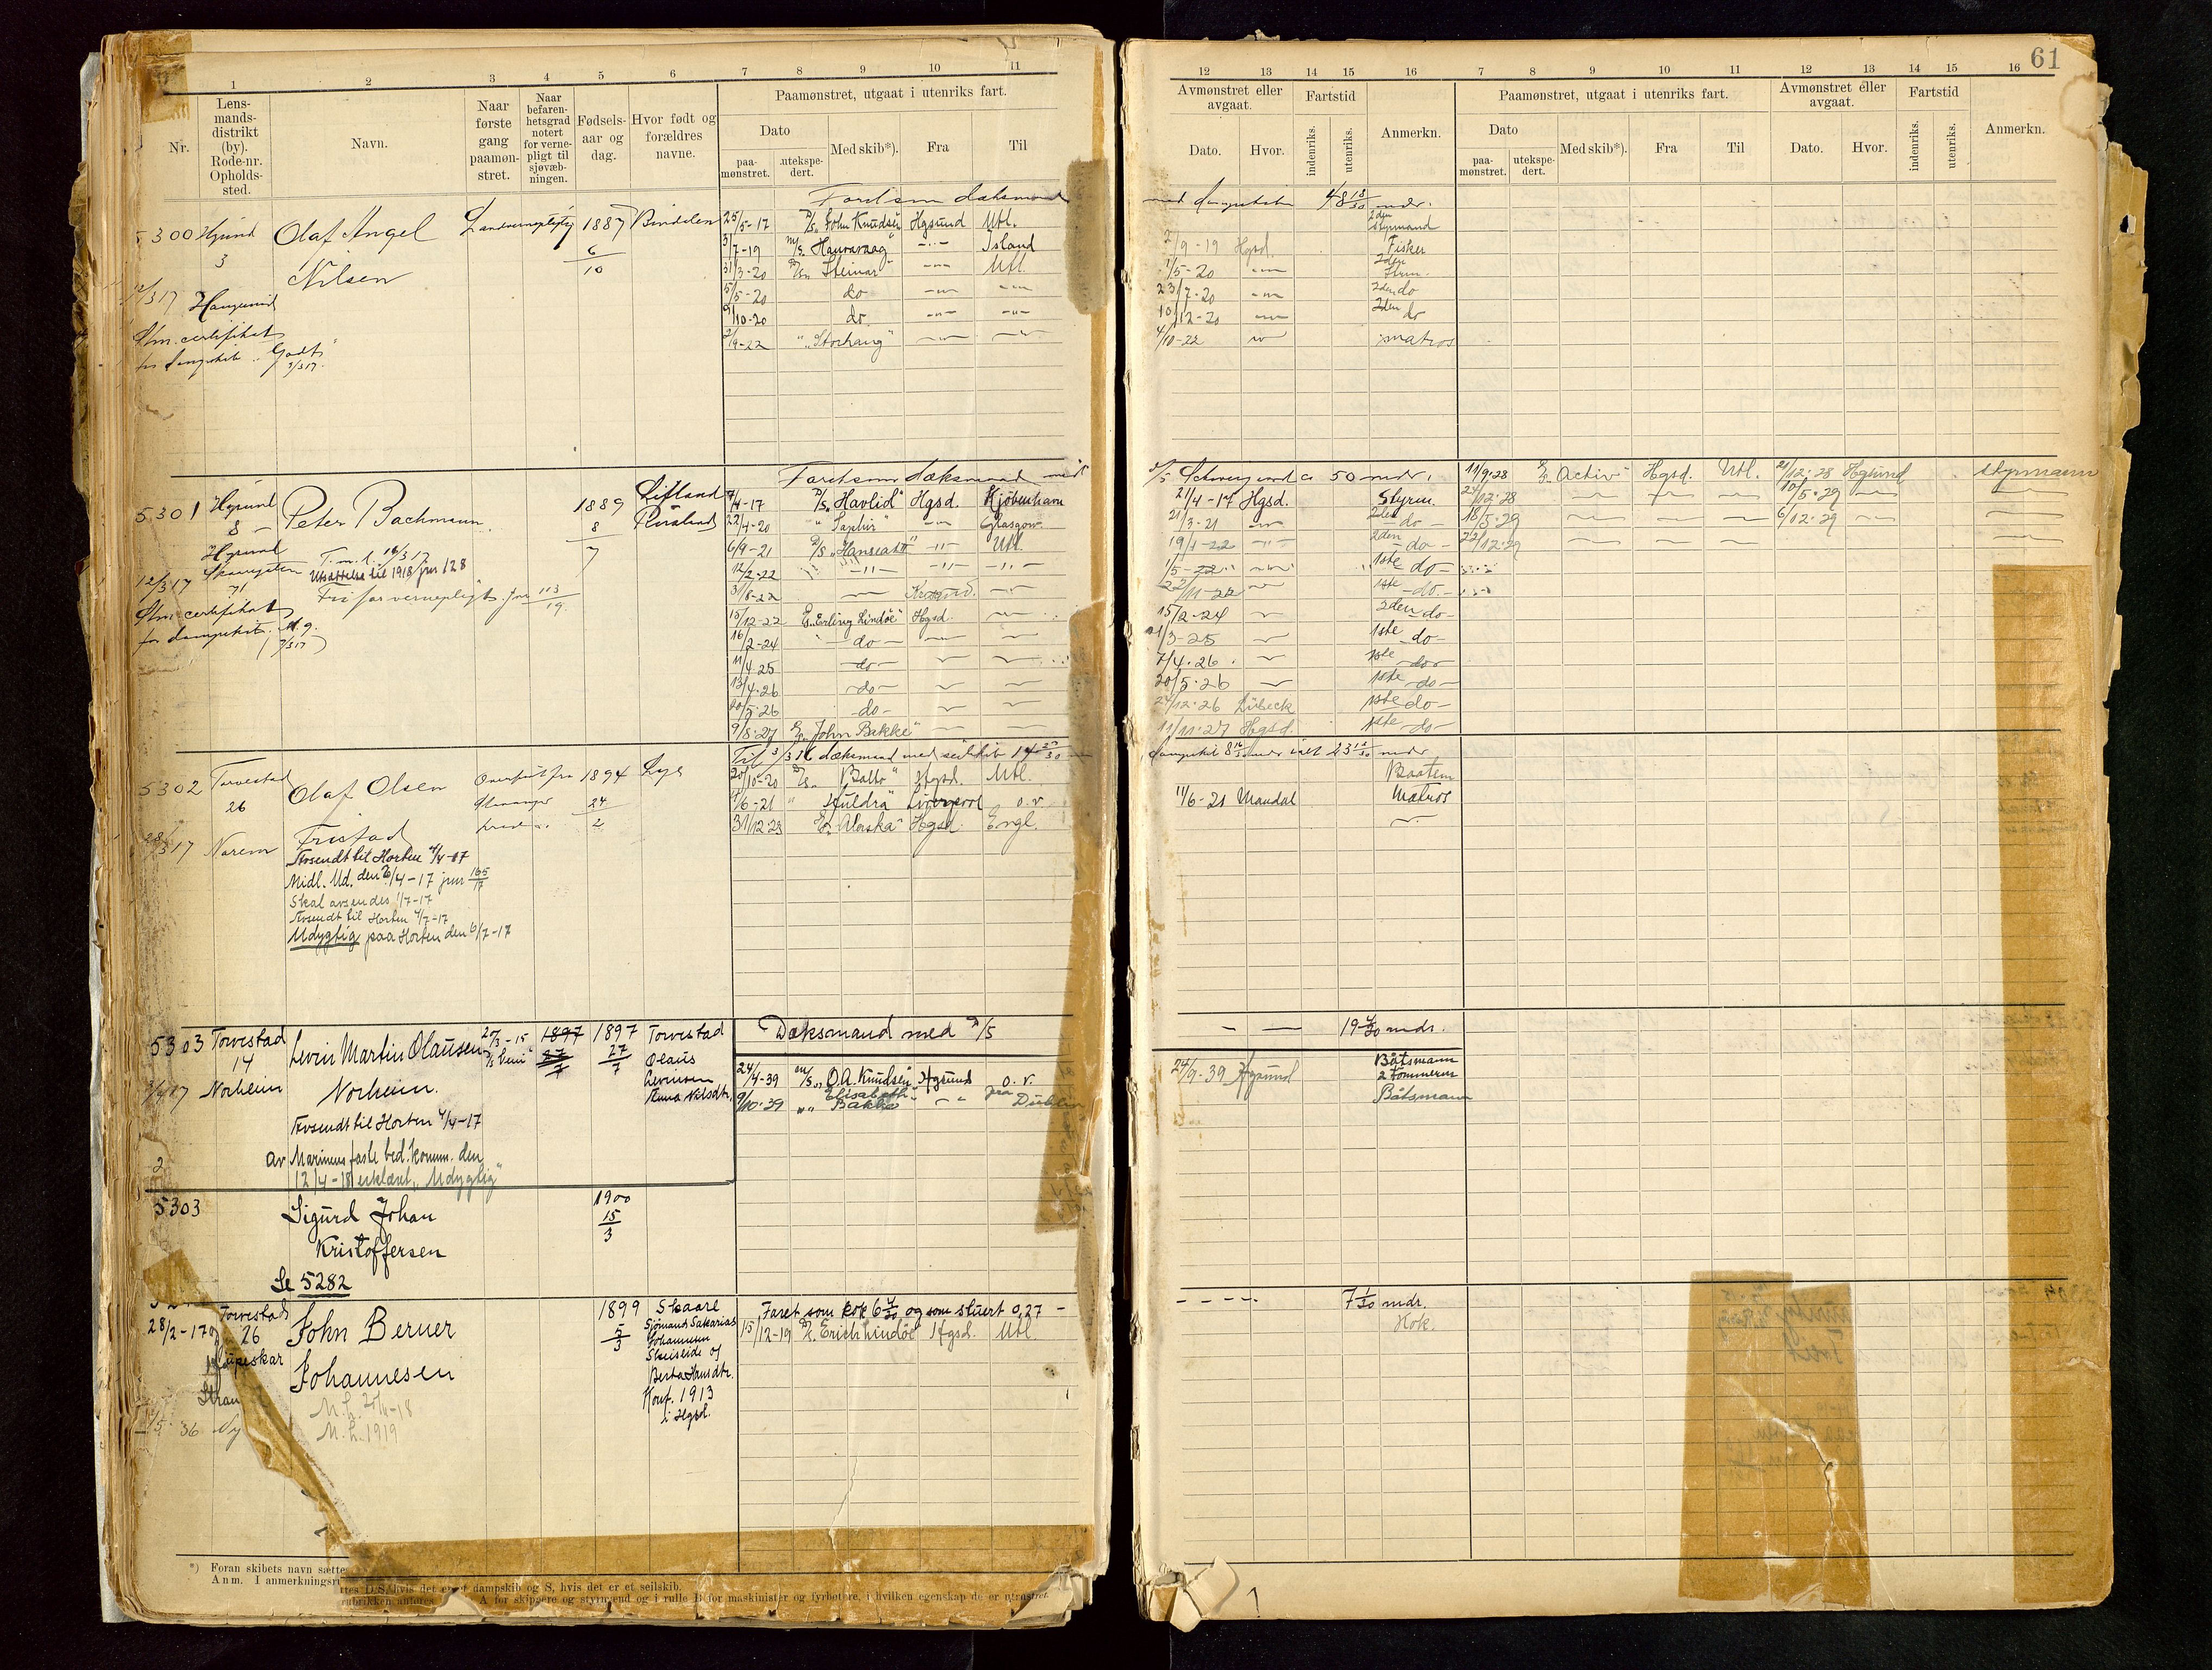 61
1 2 3 4 5 6 7 8 9 10 11
Nr.
Lens-
mands-
distrikt
(by).
Rode-nr.
Opholds-
sted.
Navn.
Naar
første
gang
paamøn-
stret.
Naar
befaren-
hetsgrad
notert
for verne-
pligt til
sjøvæb-
ningen.
Fødsels-
aar og
dag.
Hvor født og
forældres
navne.
Paamønstret, utgaat i utenriks fart.
Dato
paa-
mønstret.
utekspe-
dert.
Med skib*).
Fra
Til
12 13 14 15 16 7 8 9 10 11 12 13 14 15 16
Avmønstret eller
avgaat.
Dato.
Hvor.
Fartstid
indenriks.
utenriks.
Anmerkn.
Paamønstret, utgaat i utenriks fart.
Dato
paa-
mønstret.
utekspe-
dert.
Med skib*).
Fra
Til
Avmønstret eller
avgaat.
Dato.
Hvor.
Fartstid
indenriks.
utenriks.
Anmerkn.
5300 Hgsund Olaf Angel 1887 Bindalen
3 6/10
Nilsen
Haugesund
Stm. certifikat
for dampskib "Godt"
Faret som dæksmand
25/5-17 D/S "John Knudsen" Hgsund Utl.
/7-19 M/S "Havaraag" -"- Island
31/3-20 D/S "Steinar" -"- Utl.
5/5-20 do -"- -"-
9/10-20 do -"- -"-
2/9-22 "Storhaug"
med dampskib 48 18/30 mdr.
2den styrmand
/9-19 Hgsd. Fisker
/5-20 2den Strm.
23/7-20 2den do
10/12-20 2den do
4/10-22 matros
5301 Hgsund Peter Bachmann 1889 Lifland
8 8/7 Rusland
Hgsund
12/3 17 Skaaregaten
71
T.m.l. 16/3 17
Utsættelse til 1918 jnr 128
Fri for vernepligt jnr 113/19
Stm. certifikat
for dampskib M.g.
Faret som dæksmand med
/4-17 D/S "Havlid" Hgsd. Kjøbenhavn
22/4-20 " "Saphir" Glasgow
6/9-21 D/S "Hanseat" -"- Utl.
12/2-22 -"- -"- -"-
3/8-22
15/12-22 "Erling Lindøe" Hgsd.
16/2-24 -do-
11/4-25 -do-
13/4-26 -do-
20/5-26 -do-
9/8-27 "John Bakke"
50 mdr.
21/4-17 Hgsd. Styrm.
21/3-21 2den do-
19/1-22 2den do-
1/5-22 1ste do-
22/11-22 1ste do-
15/2-24 2den do-
/3-25 1ste do-
7/4-26 1ste do-
20/5-26 1ste do-
22/12-26 Lübeck 1ste do-
11/11-27 Hgsd. 1ste do-
11/9-28 "Activ" Hgsd. Utl. 21/12-28 Hgsund styrmann
24/12-28 10/5-29
18/5-29 6/12-29
22/12-29
5302 Torvestad Olaf Olsen Overført fra 1894
26 24/2
28/3 17 Norem Fristad
Avsendt til Horten 4/4-17
Midl. Ud. den 26/4-17 jnr 165/17
Skal avsendes 1/7-17
Avsendt til Horten 4/7-17
Udygtig paa Horten den 6/7-17
Til 3/3 16 dæksmand med seilskib 14 20/30
20/10-20 D/S "Balto" Hgsd. Utl.
/6-21 " "Huldra" Liverpool o.v.
31/12-23 "Alaska" Hgsd. Engl.
dampskib 8 16/30 mdr ialt 23 mdr
Baatsm
11/6-21 Mandal Matros
5303 Torvestad Levin Martin Olausen 20/3-15 1897 1897 Torvestad
14 27/7 27/7 Olaus
Norheim Norheim. Levinsen
Avsendt til Horten 4/4-17
av Marinens faste bed. komm. den
12/4-18 erklært "Udygtig"
Dæksmand med D/S
24/4-39 M/S "O.A. Knudsen" Hgsund o.v.
9/10-39 " "Elisabeth Bakke" -"- fra Dublin
- - 19 mdr.
24/9-39 Hgsund Båtsmann
2 Tømmerm
Båtsmann
5303 Sigurd Johan 1900
Kristoffersen 15/3
Se 5282
Torvestad John Berner 1899 Skaare
28/2-17 26 5/3 Sjømand Sakarias
Johannesen Johannesen
Skeiseide og
Berta Hansdtr.
Konf. 1913
i Hgsd.
M.h. 1919
Faret som kok 6 og som stuert 0,27 -
15/12-19 D/S "Erich Lindøe" Hgsd. Utl.
7 1/30 mdr.
Kok.
*) Foran skibets navn sættes D/S, hvis det er et dampskib og S, hvis det er et seilskib.
Anm. I anmerkningsrubrikken anføres A for skippere og styrmænd og i rulle B for maskinister og fyrbøtere, i hvilken egenskap de er utmønstret.